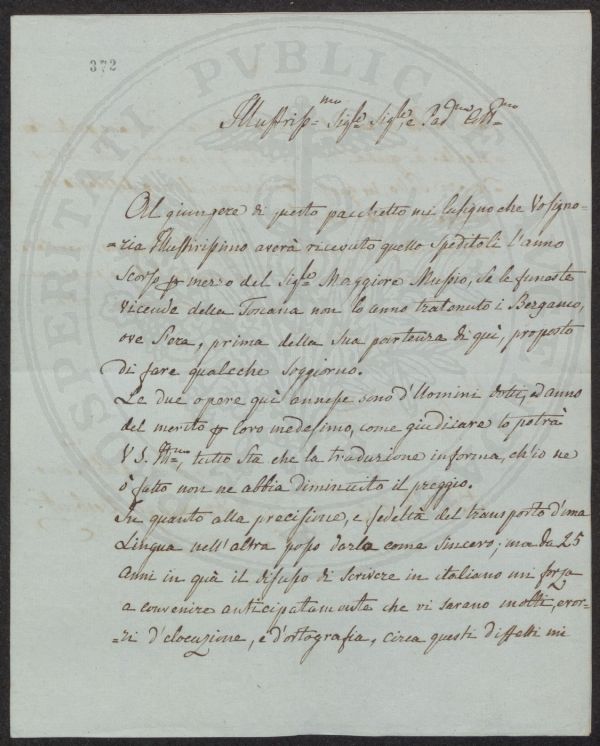 372
PROSPERITATI PVBLICAE
Illustriss.mo Sig.re Sig.re, e Pad.ne
Al giungere di questo pacchetto mi lusigno che Vosigno-
=ria Illustrissimo averà ricevuto quello speditoli l'anno
scorso per mezzo del Sig.re Maggiore Mussio, se le funeste
vicende della Toscana non lo anno tratenuto i Bergamo,
ove s'era, prima della sua partenza di quì, proposto
di fare qualche soggiorno.
Le due opere quì annesse sono d'Uomini dotti, ed anno
del merito per loro medesimo, come giudicare lo potrà
V S. Ill.mo, tutto sta che la traduzione informa, ch'io ne
ò fatto non ne abbia diminuito il preggio.
In quanto alla precisione, e fedeltà del transporto d'una
Lingua nell'altra posso darla come sincero; ma da 25
anni in quà il disuso di scrivere in italiano mi forza
a convenire anticipatamente che vi sarano molti error-
=ri d'elocuzione, e d'ortografia, circa questi diffetti mi